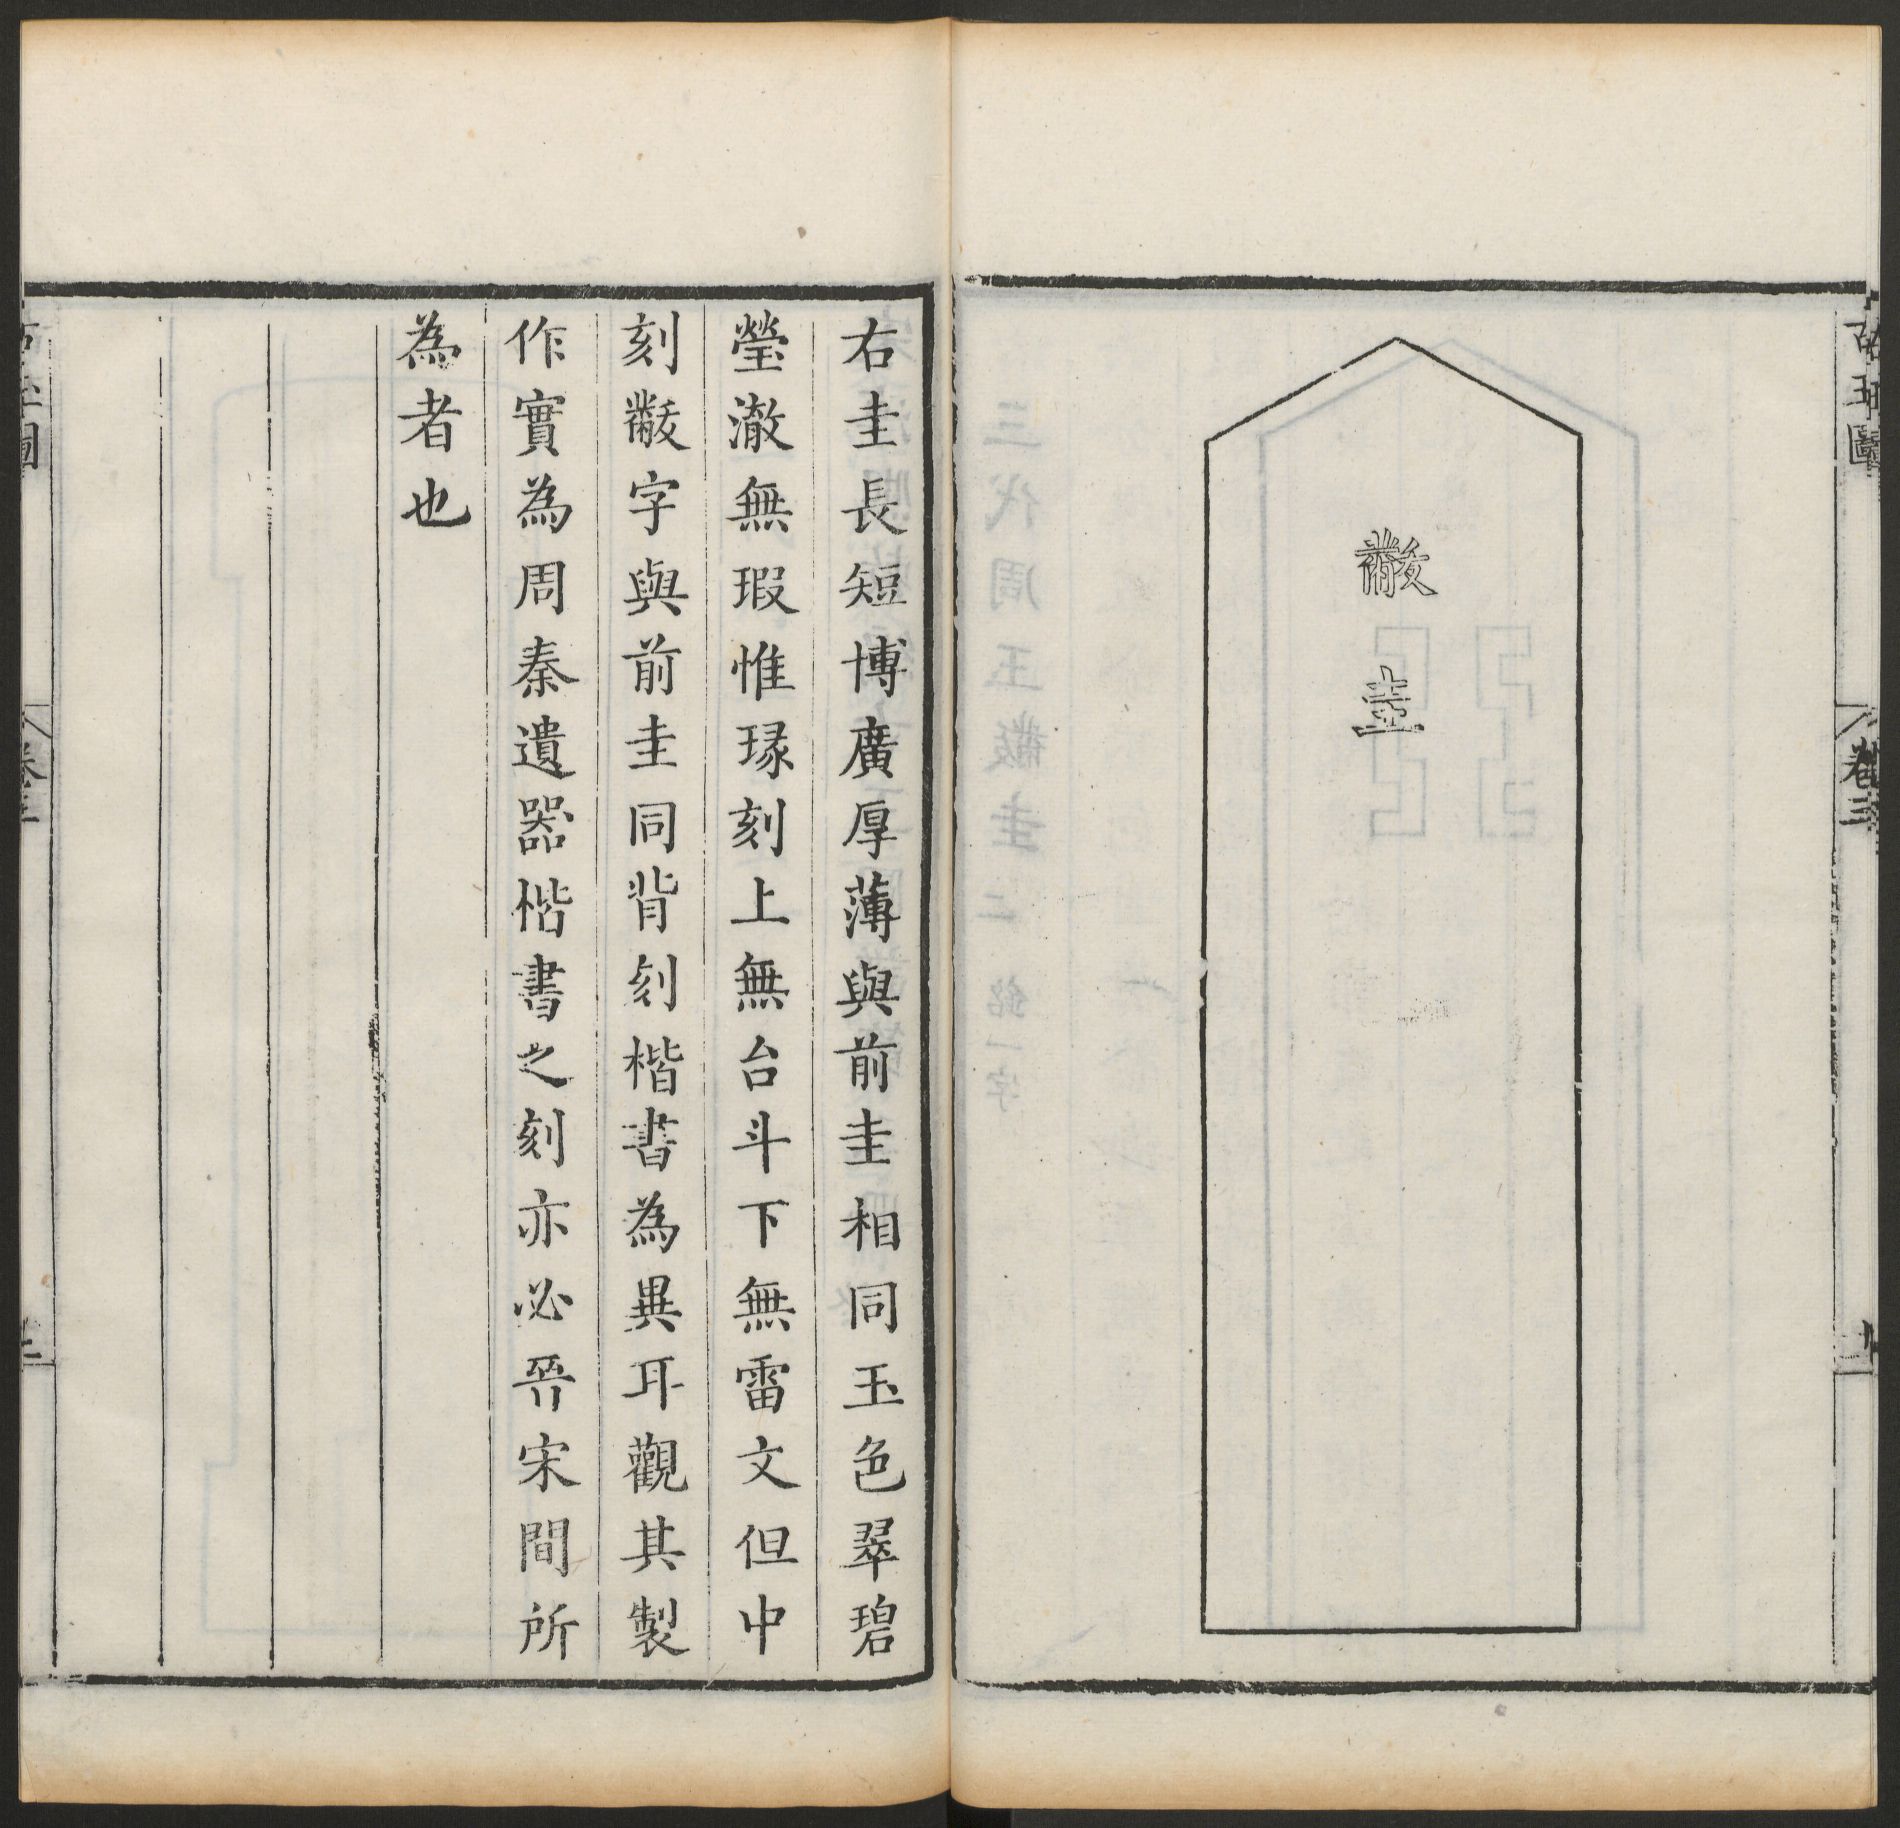 古玉圖
卷三
黻
圭
右圭長短博廣厚薄與前圭相同玉色翠碧
瑩澈無瑕惟瑑刻上無台斗下無雷文但中
刻黻字與前圭同背刻楷書為異耳觀其製
作實為周秦遺器楷書之刻亦必晉宋間所
為者也